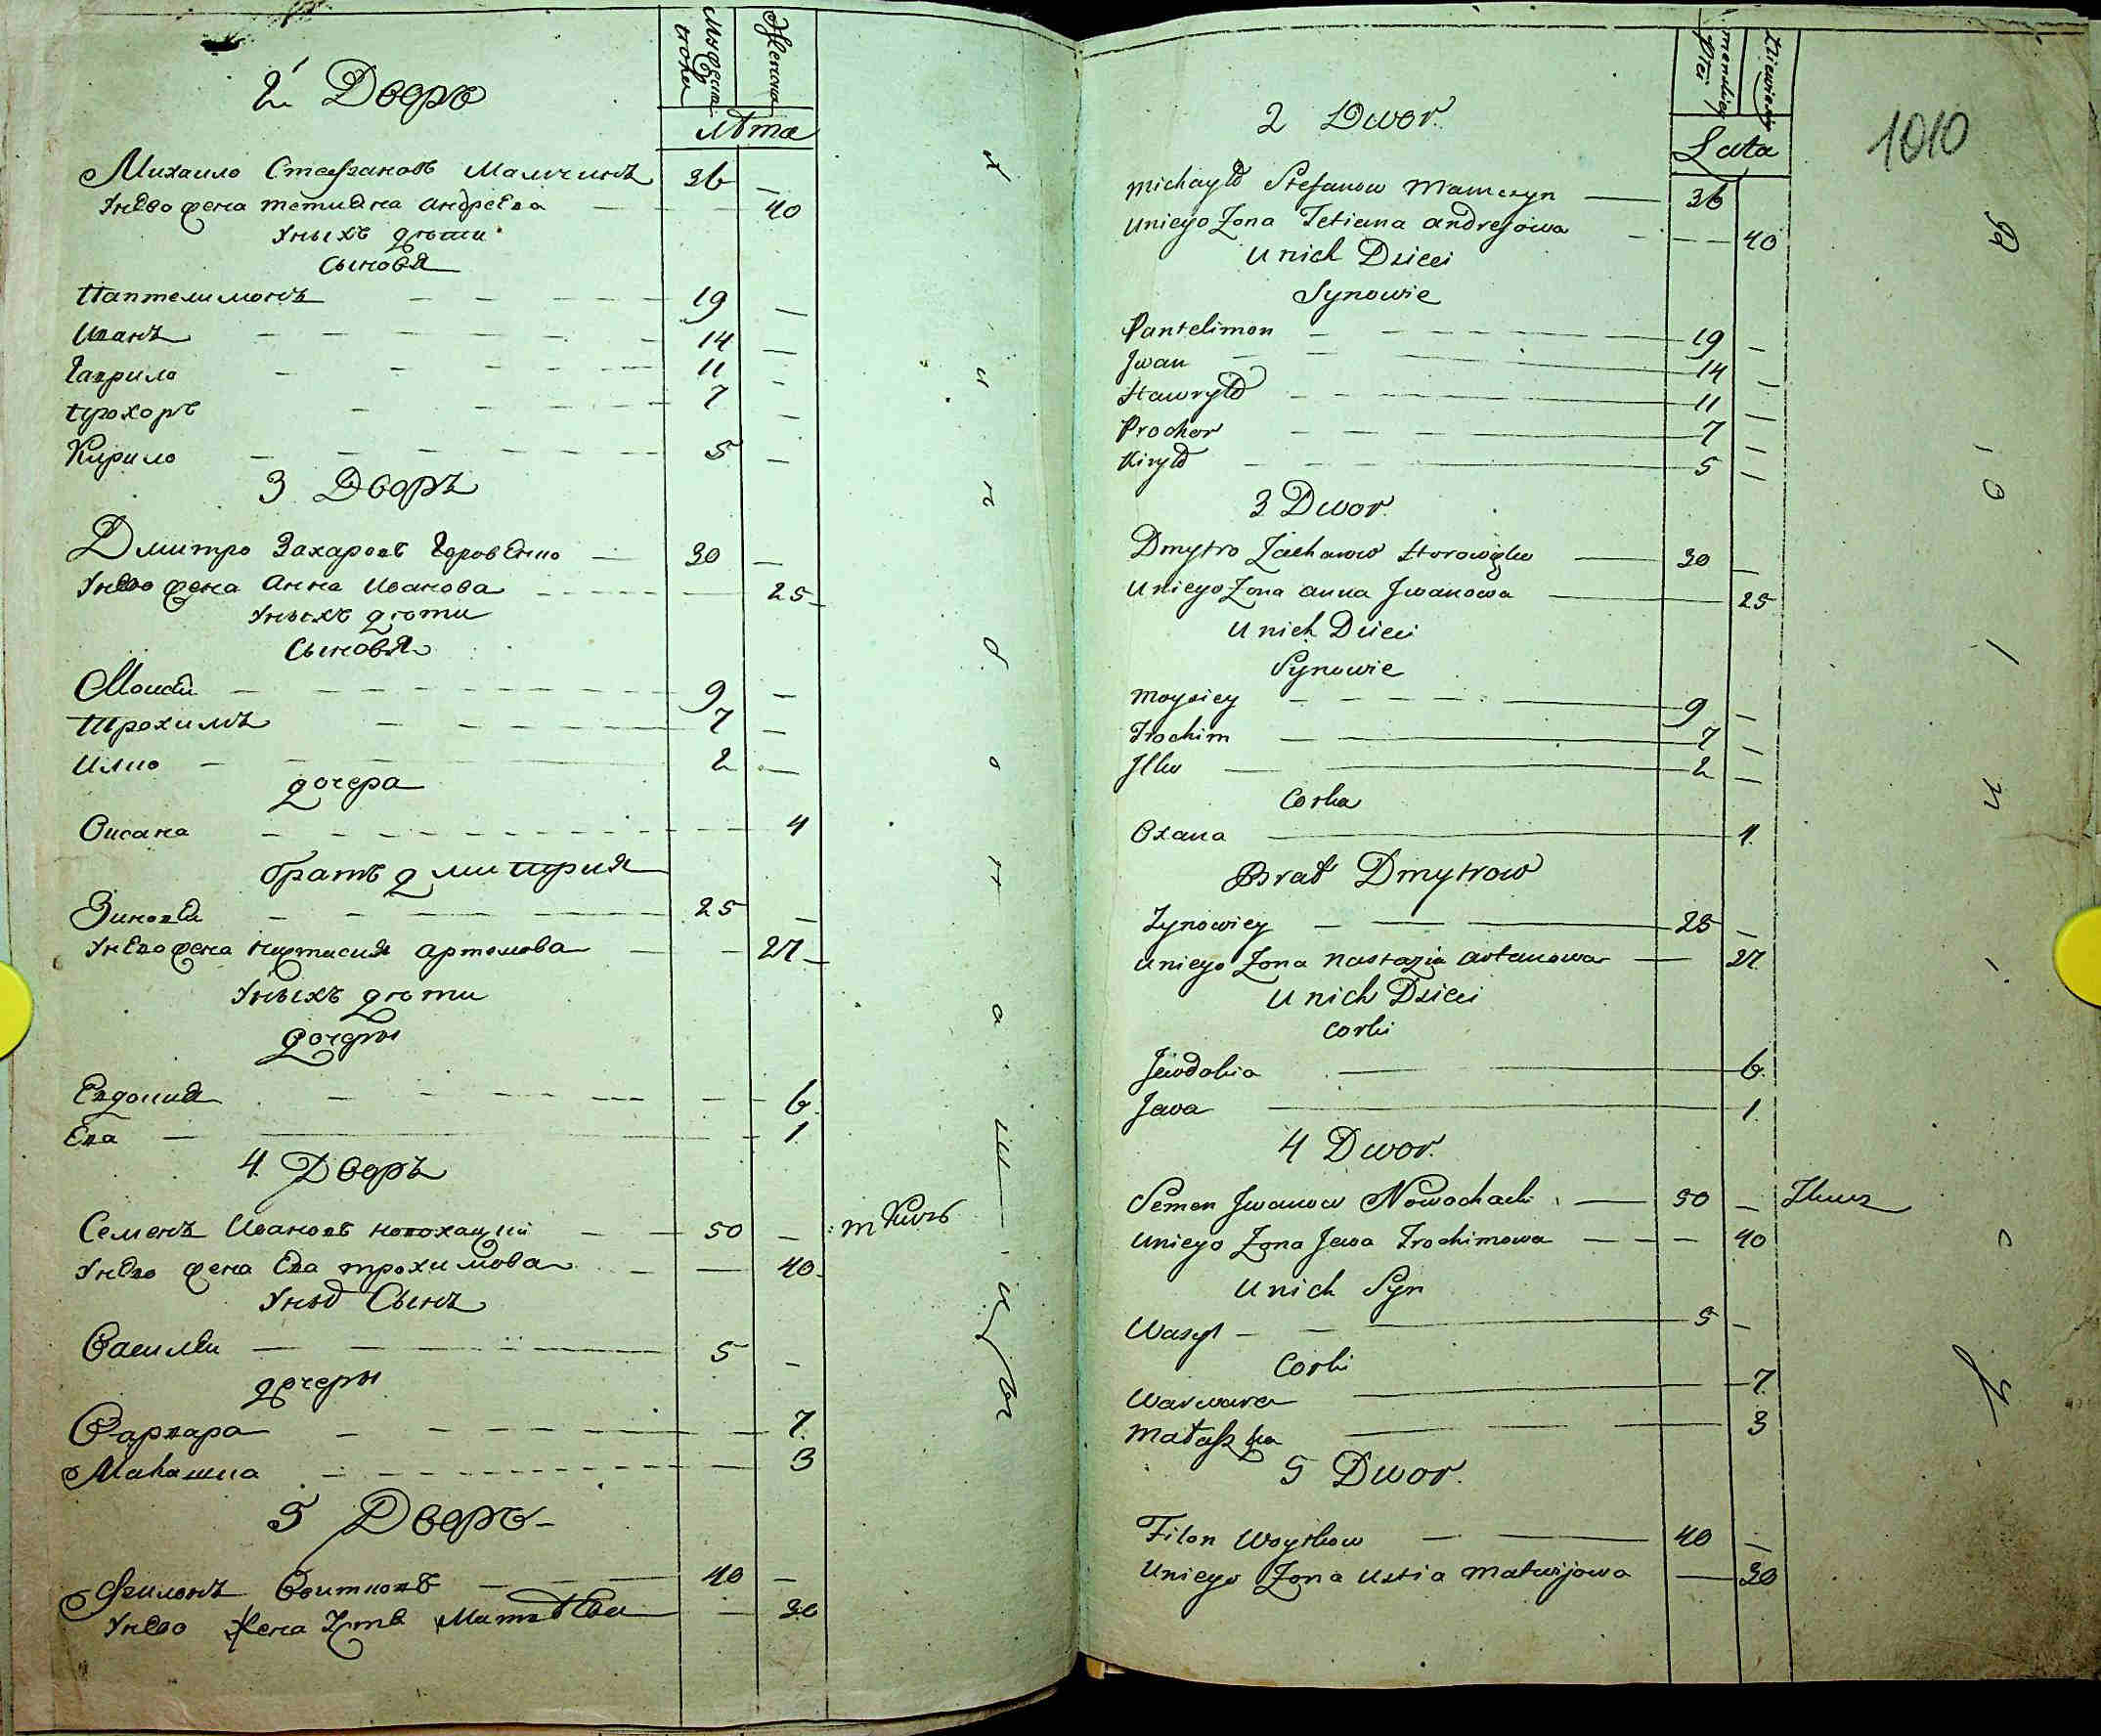 Мужеска
ска
Женска
2й Дворъ
Лѣта
Михаило Стефановъ Мамчинъ 36 —
Унево жена тетияна андрѣева — 40
Уныхъ дѣти
Сыновя
Пантелимонъ 19 —
Иванъ 14 —
Гаврило 11 —
прохоръ 7 —
Кирило 5 —
3 Дворъ
Дмитро Захаровъ 30 —
Унево жена Анна Иванова — 25
Уныхъ дѣти
Сыновя
Моисѣй 9 —
Трохимъ 7 —
Илко 2 —
дочера
Оксана — 4
братъ дмитрия
Зиновѣй 25 —
Унево жена артемова — 27
Уныхъ дѣти
дочеры
Евдокия — 6
Ева — 1
4 Дворъ
Семенъ Ивановъ новохацкий 50 —
Унево жена Ева трохимова — 40
Сынъ
Василѣй 5 —
дочеры
Варвара — 7
Малашка — 3
5 Дворъ
Филонъ Воитковъ 40 —
Унево Жена Матвѣева — 30
1010
Lata
2 Dwor.
Michayło Stefanow Mamczyn 36
Uniego Zona Tetiana Andrejowa — 40
U nich Dzieci
Synowie
Pantelimon 19 —
Jwan 14 —
Hawryło 11 —
Prochor 7 —
Kiryło 5 —
3 Dwor.
Dmytro Zacharow 30 —
Uniego Zona Anna Jwanowa 25
U nich Dzieci
Synowie
Moysiey 9 —
Trochim 7 —
Jlko 2 —
Corka
Oxana 4
Brat Dmytrow
Zynowiey 25 —
Uniego Zona Nastazia Artemowa — 27
U nich Dzieci
Corki
Jewdokia 6
Jewa 1
4 Dwor.
Semen Jwanow Nowochacki 50 —
Uniego Zona Jewa Trochimowa — 40
U nich Syn
Wasyl 5 —
Corki
Warwara 7
Małaszka 3
5 Dwor.
Filon Woytkow 40 —
Uniego Zona Ustia Matwijowa — 30